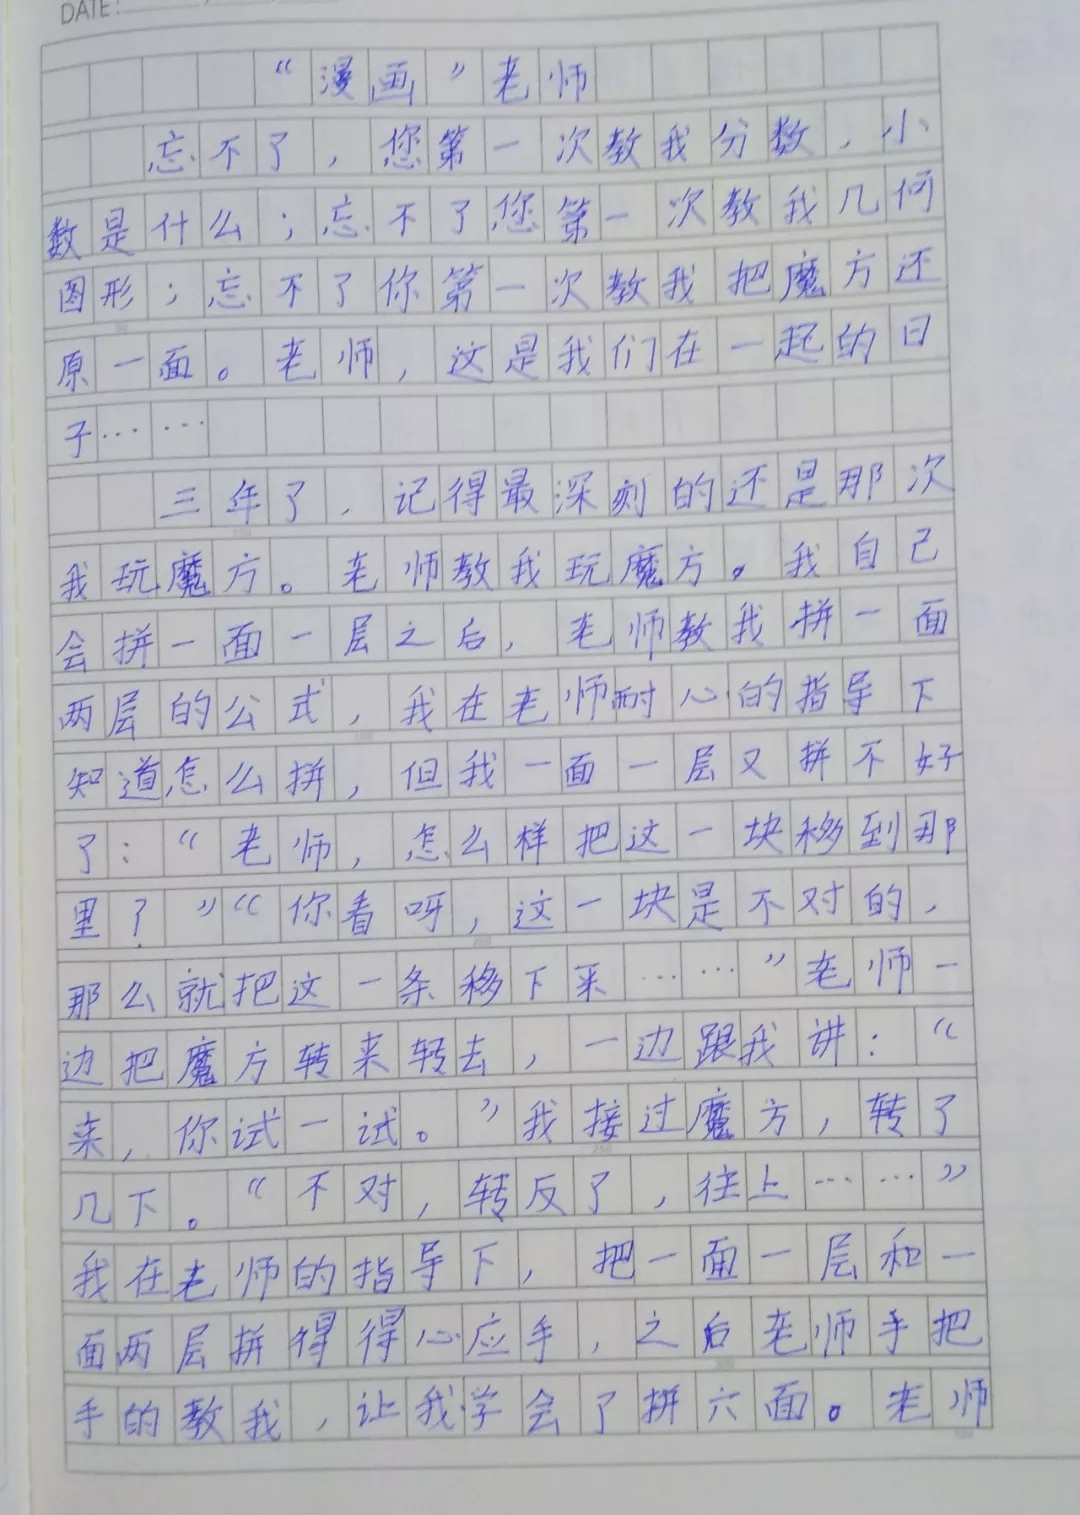 DATE:
“漫画”老师
忘不了，您第一次教我分数，小
数是什么；忘不了您第一次教我几何
图形；忘不了你第一次教我把魔方还
原一面。老师，这是我们在一起的日
子……
三年了，记得最深刻的还是那次
我玩魔方。老师教我玩魔方。我自己
会拼一面一层之后，老师教我拼一面
两层的公式，我在老师耐心的指导下
知道怎么拼，但我一面一层又拼不好
了：“老师，怎么样把这一块移到那
里？”“你看呀，这一块是不对的，
那么就把这一条移下来……”老师一
边把魔方转来转去，一边跟我讲：“
来，你试一试。”我接过魔方，转了
几下。“不对，转反了，往上……”
我在老师的指导下，把一面一层和一
面两层拼得得心应手，之后老师手把
手的教我，让我学会了拼六面。老师